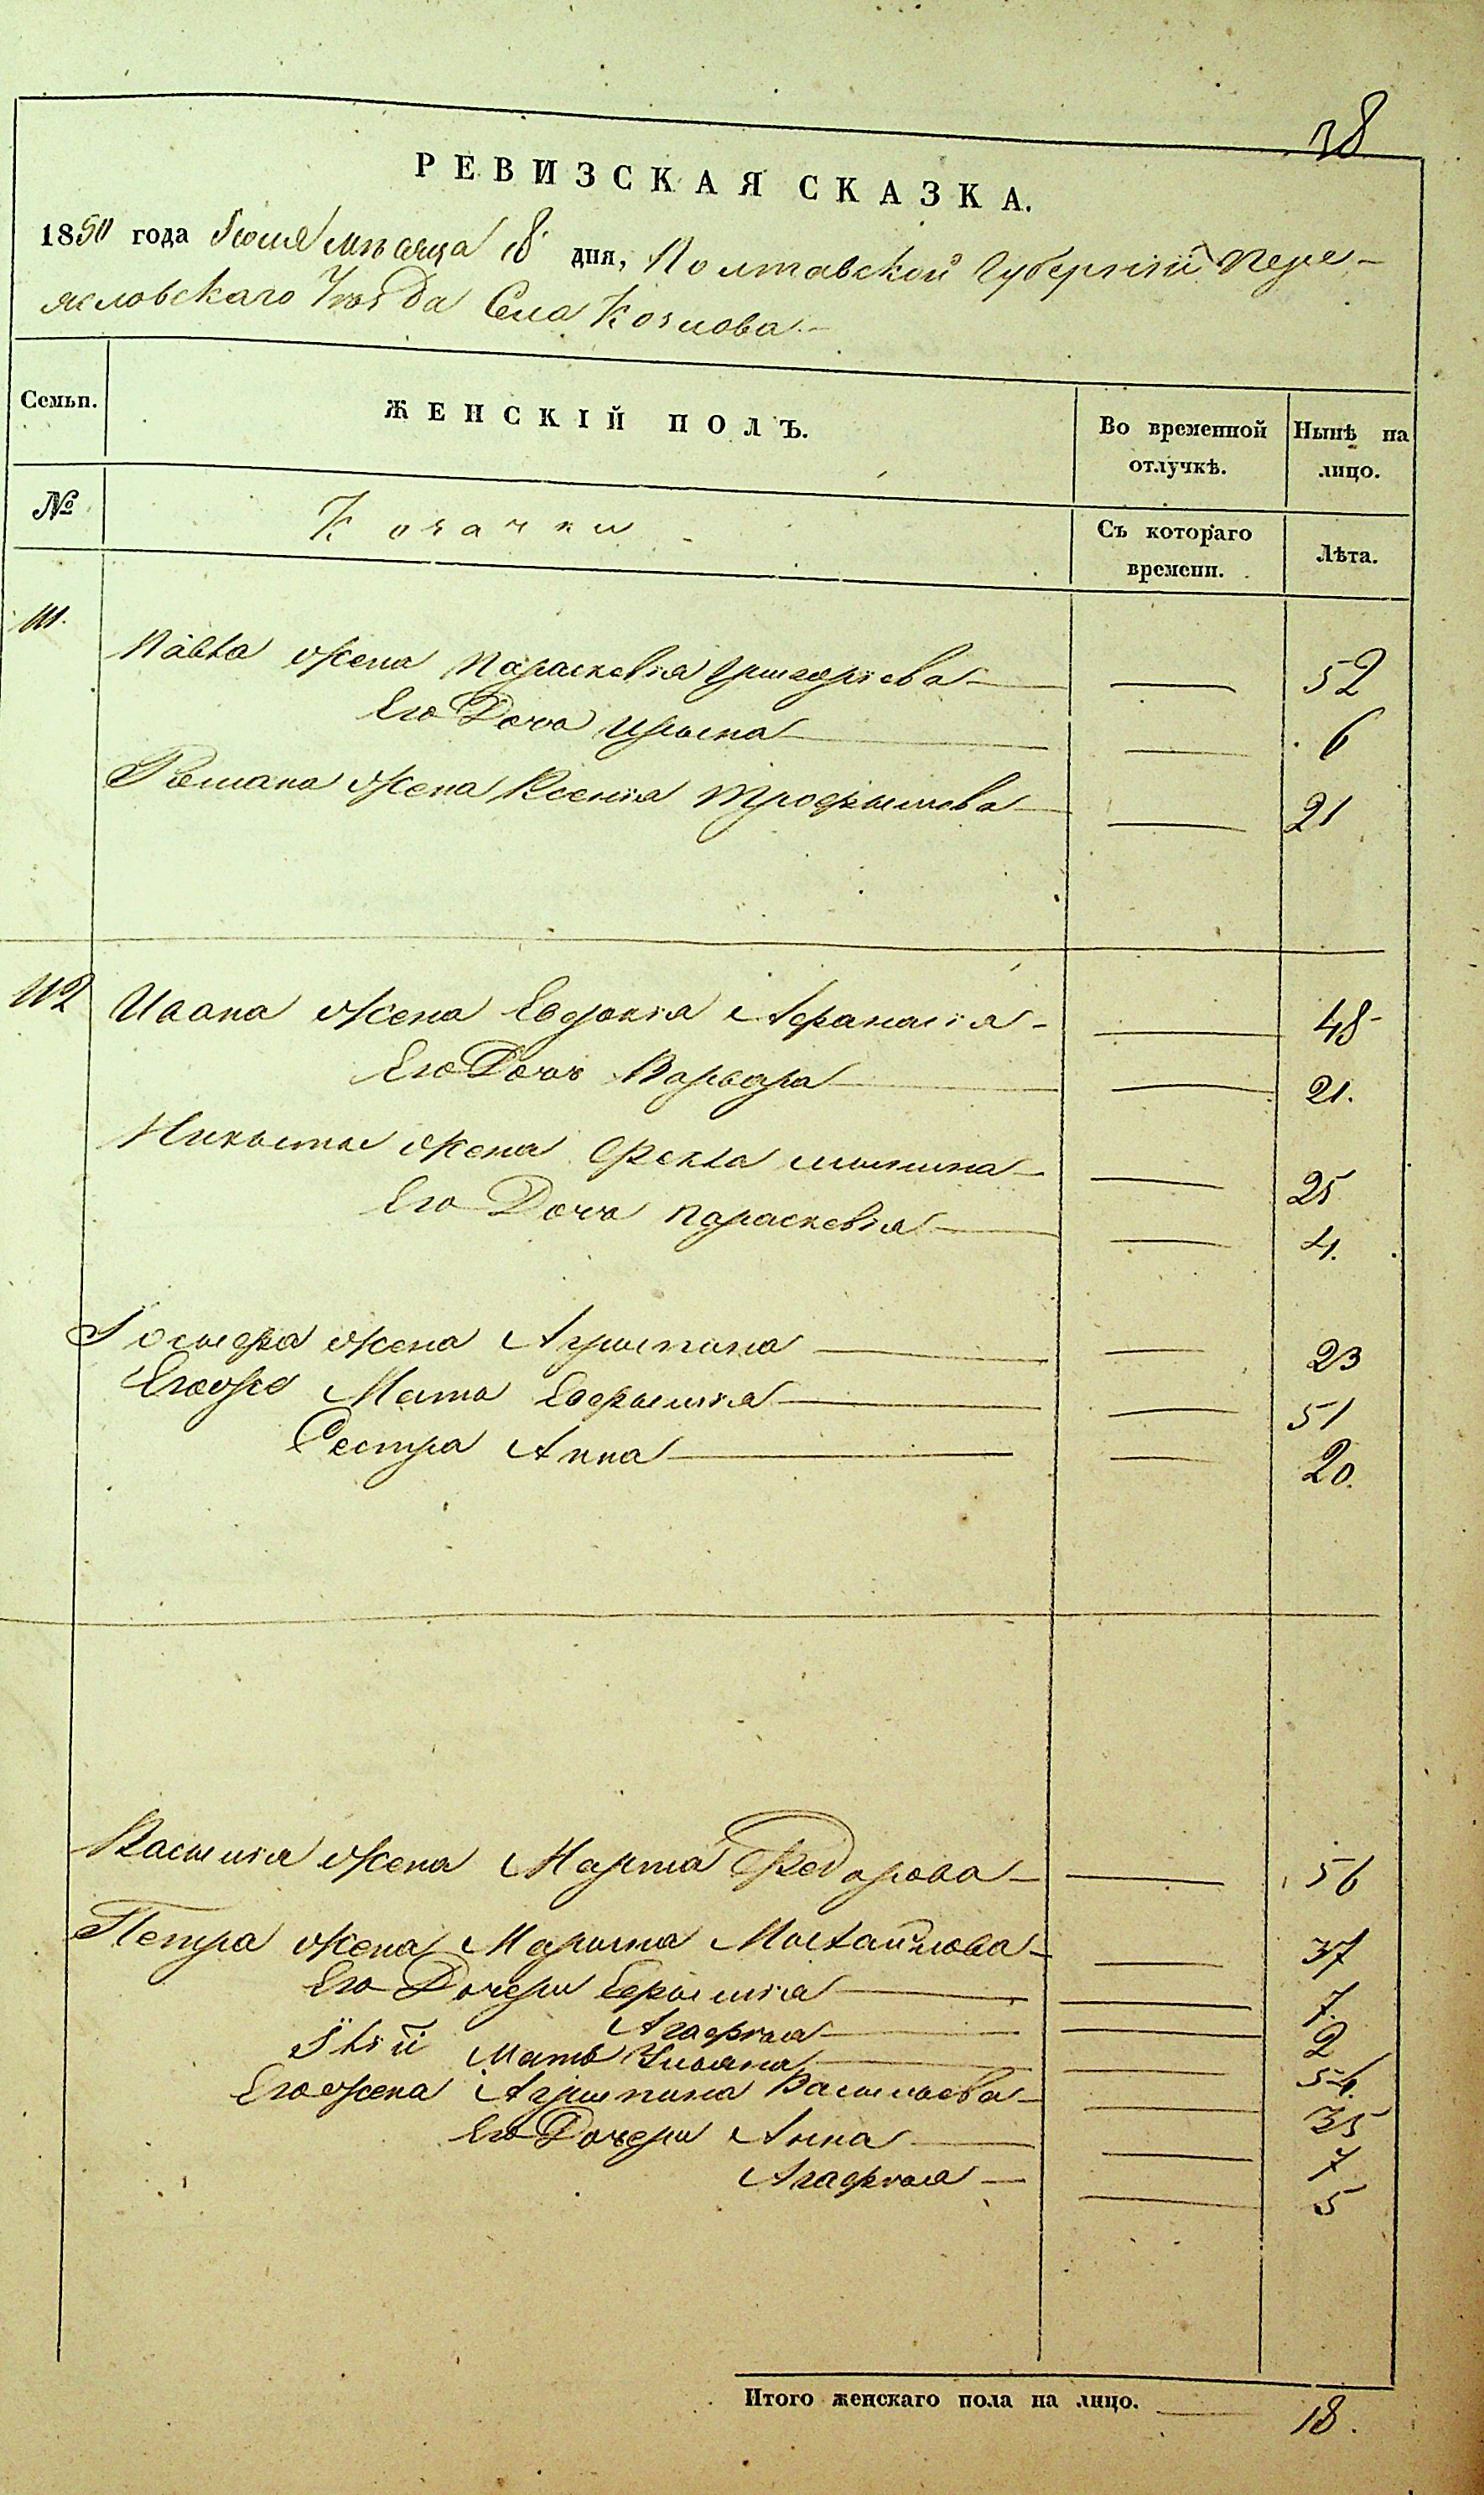 38
РЕВИЗСКАЯ СКАЗКА.
1850 года Іюля мѣсяца 18 дня, Полтавской Губерніи Пере-
ясловскаго Уѣзда Села Козлова.
Семьи.
ЖЕНСКІЙ ПОЛЪ.
Во временной отлучкѣ.
Нынѣ на лицо.
№
Козачки
Съ котораго времени.
Лѣта.
111.
Павла жена Параскевія Григоріева — 52
Его Дочь Ирина — 6
Романа жена Ксенія Трофимова — 21
112
Ивана жена Евдокія Афанасія — 48
Его Дочь Варвара — 21.
Никиты жена Фекла — 25
Его Дочь Параскевія — 4.
Іосифа жена Агрипина — 23
Егоже Мать Евфимія — 51
Сестра Анна — 20.
Василія жена Марфа Федорова — 56
Петра жена Марина Михайлова — 37
Его Дочери Ефимія — 7.
Агафия — 2
Мать Ульяна — 54.
Его жена Агрипина Васильева — 35
Его Дочери Анна — 7
Агафия — 5
Итого женскаго пола на лицо. 18.